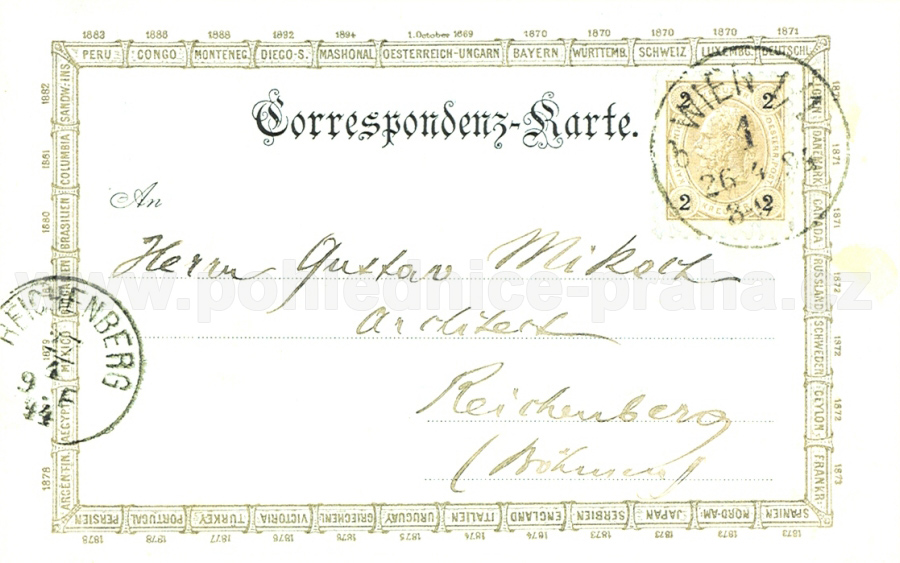 1883 1886 1888 1892 1894 1.October 1869 1870 1870 1870 1870 1871
PERU CONGO MONTENEG. DIEGO-S. MASHONAL OESTERREICH-UNGARN BAYERN WÜRTTEMB. SCHWEIZ LUXEMBG. DEUTSCHL.
Correspondenz-Karte.
2 2
2 2
WIEN
1
26
An
Herrn Gustav Miksch
Architect
Reichenberg
(Böhmen)
www.pohlednice-praha.cz
REICHENBERG
9
DÄNEMARK CANADA RUSSLAND SCHWEDEN CEYLON FRANKR.
1871 1871 1872 1872 1872 1873
SPANIEN NORD-AM. JAPAN SERBIEN ENGLAND ITALIEN URUGUAY GRIECHENL. VICTORIA TURKEY PORTUGAL PERSIEN
1873 1873 1873 1873 1874 1874 1875 1876 1876 1877 1878 1878
ARGENTIN. AEGYPT. MEXICO BRASILIEN COLUMBIA SANDW.-INS.
1878 1879 1880 1881 1882